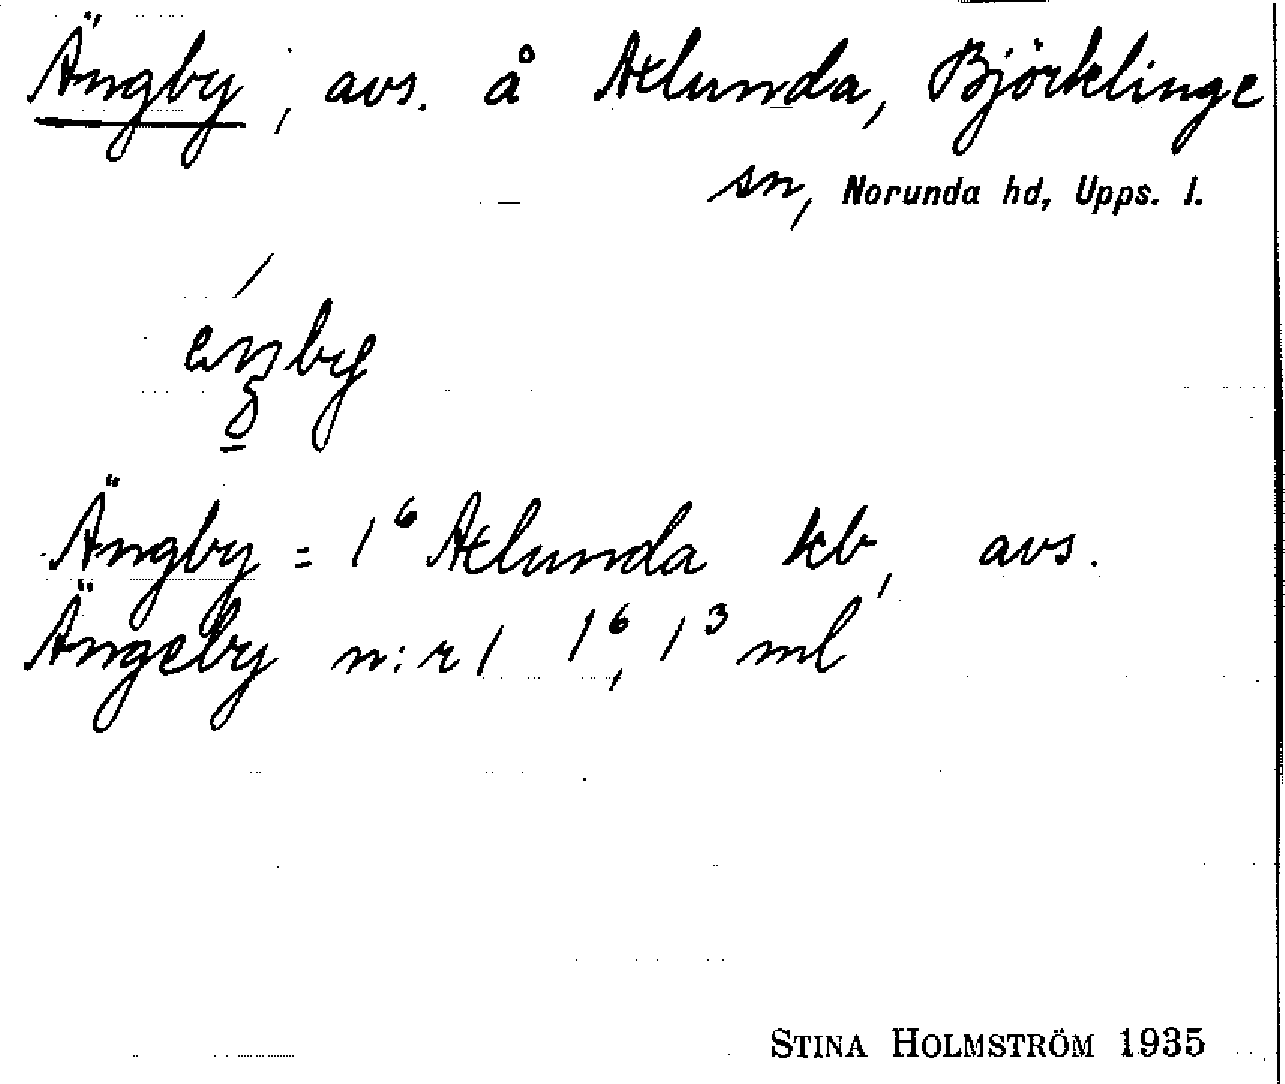 Ängby, avs. å Axlunda, Björklinge
sn, Norunda hd, Upps. l.
Ängby = 1⁶ Axlunda kb, avs.
Ängeby n:r 1 1⁶, 1³ ml
STINA HOLMSTRÖM 1935